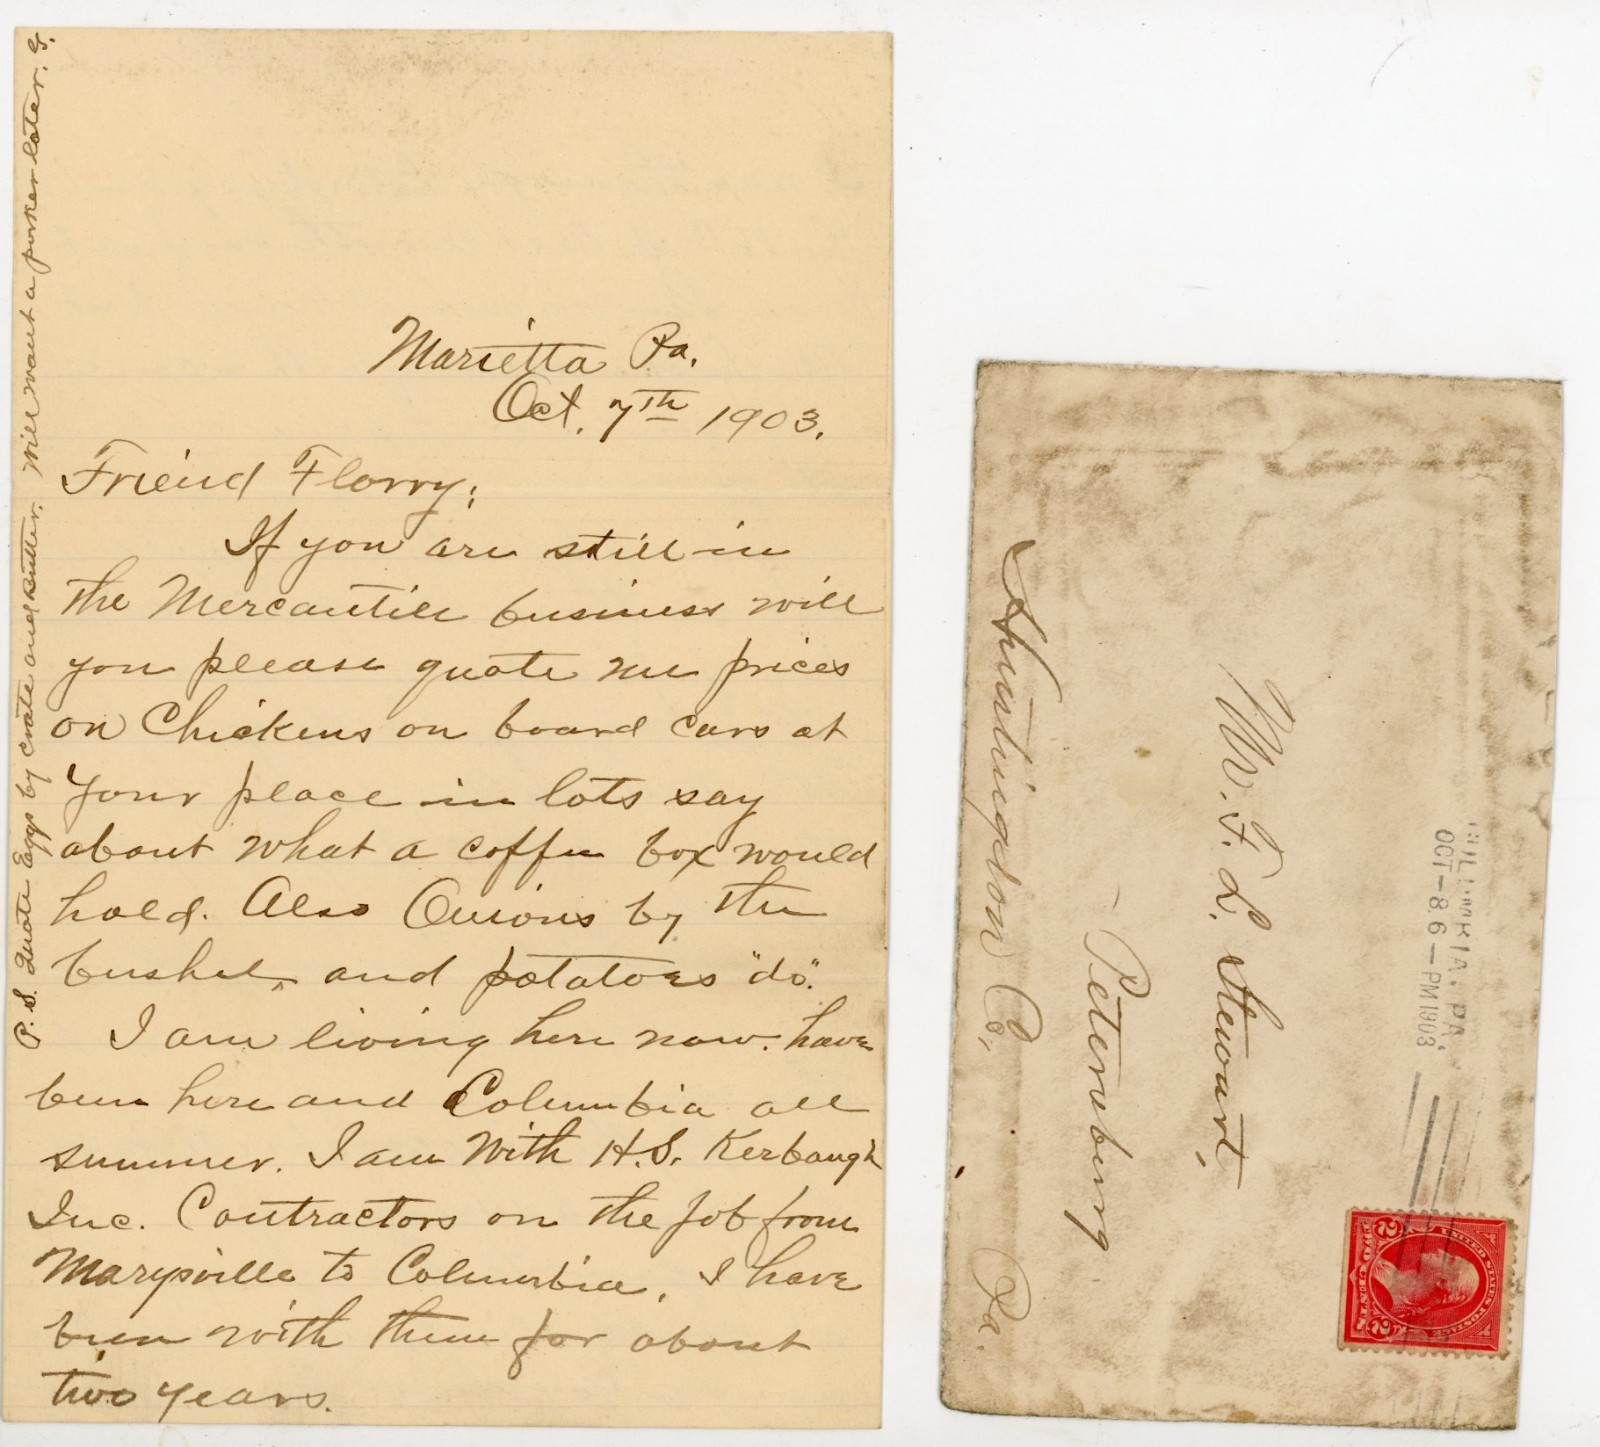 Marietta Pa.
Oct. 7th 1903.
Friend Florry;
If you are still in
the Mercantile business will
you please quote me prices
on Chickens on board cars at
your place in lots say
about what a coffin box would
hold. Also Onions by the
bushel, and potatoes "do".
I am living here now. have
been here and Columbia all
summer. I am with H.S. Kerbaugh
Inc. Contractors on the job from
Marysville to Columbia. I have
been with them for about
two years.
P.S. Quote Eggs by crate and Butter. Will want a porker later. G.
W. F. L. Stewart,
Petersburg
Huntingdon Co.,
Pa.
PHILADELPHIA, PA.
OCT-8.6-PM 1903
UNITED STATES POSTAGE
2 TWO CENTS 2